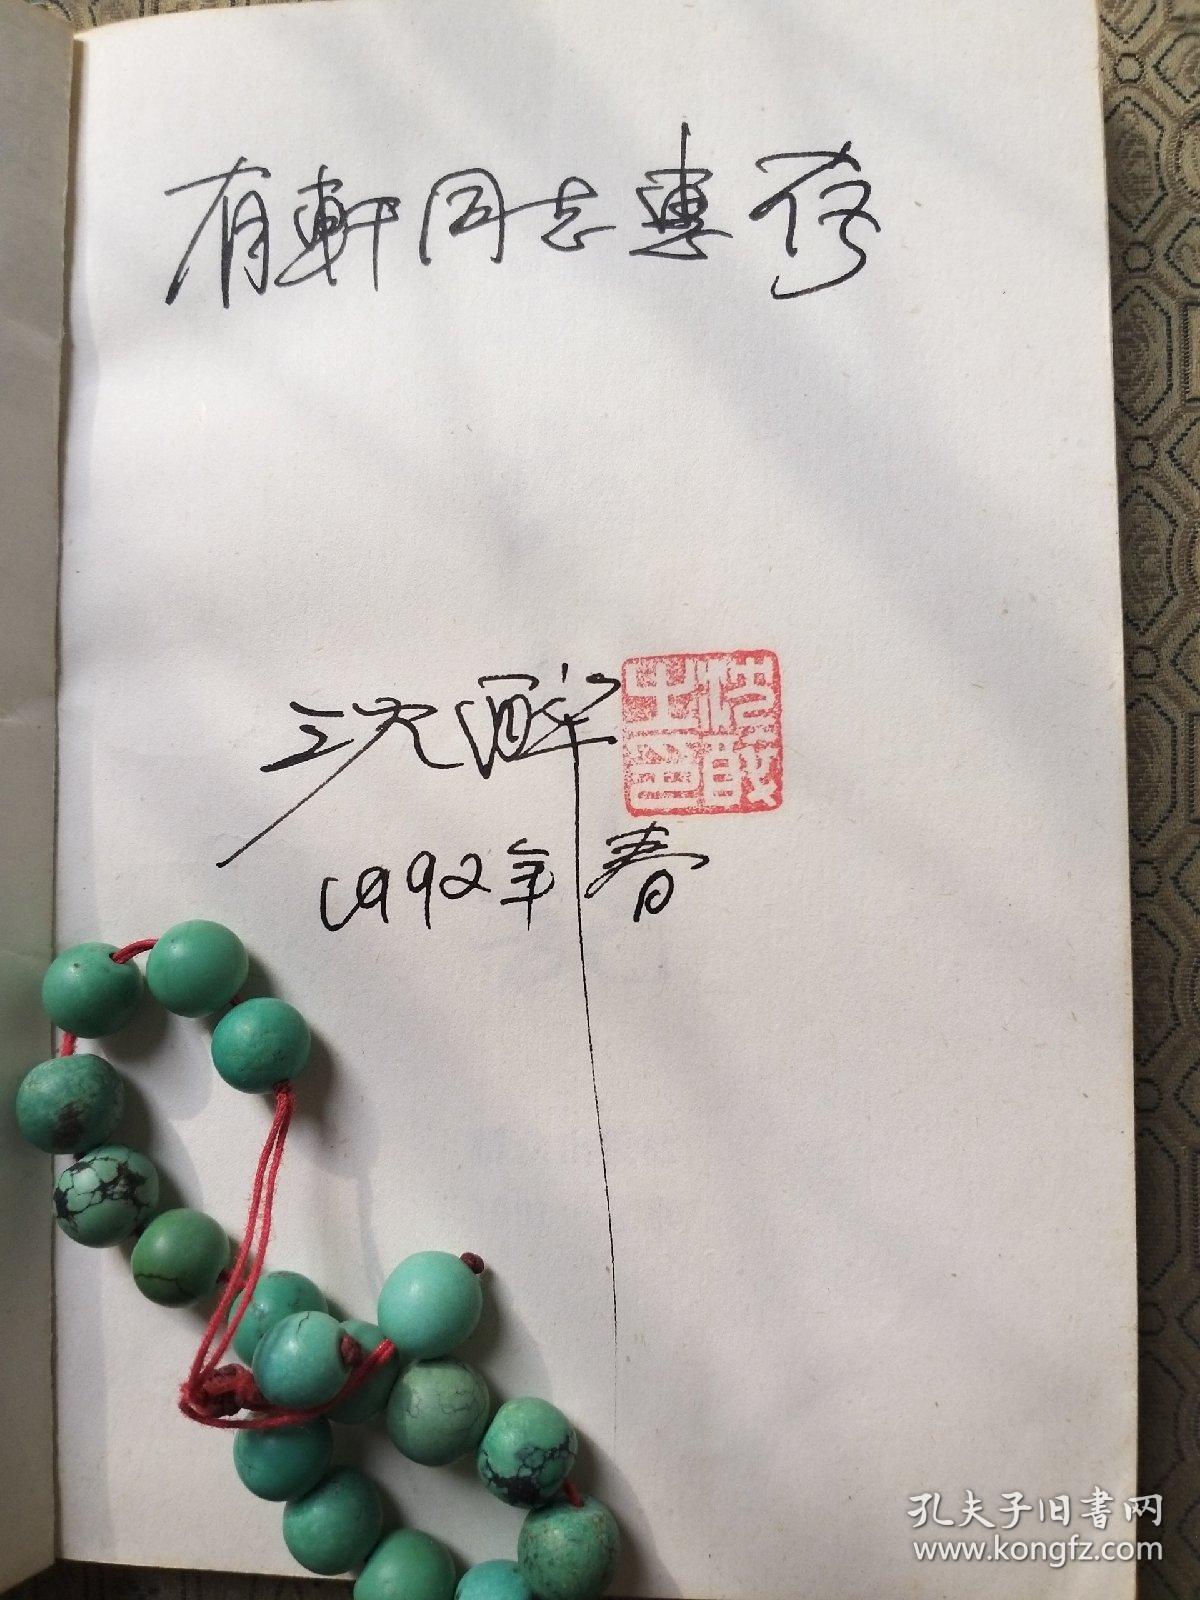 有軒同志惠存
沈醉
1992年春
孔夫子旧書网
www.kongfz.com